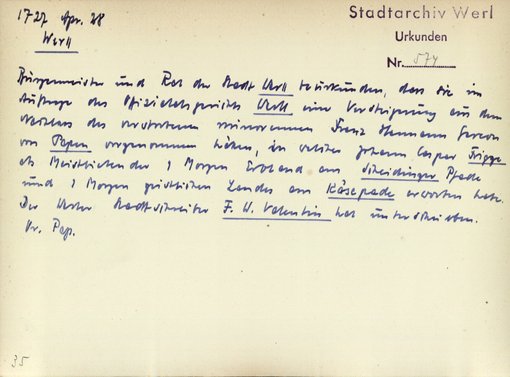 1727 Apr. 28
Werl
Stadtarchiv Werl
Urkunden
Nr. 574
Bürgermeister und Rat der Stadt Werl beurkunden, dass sie im
Auftrage des Offizialatsgerichts Werl eine Versteigerung aus dem
Nachlass des verstorbenen Franz Hermann
von Papen vorgenommen haben, in welcher Johann Caspar Frigge
als Meistbietender 1 Morgen Erbland am Scheidinger Pfade
und 1 Morgen Landes am Käsepade erworben habe.
Der Werler Stadtschreiber F. W. Valentin hat unterschrieben.
Or. Pap.
35